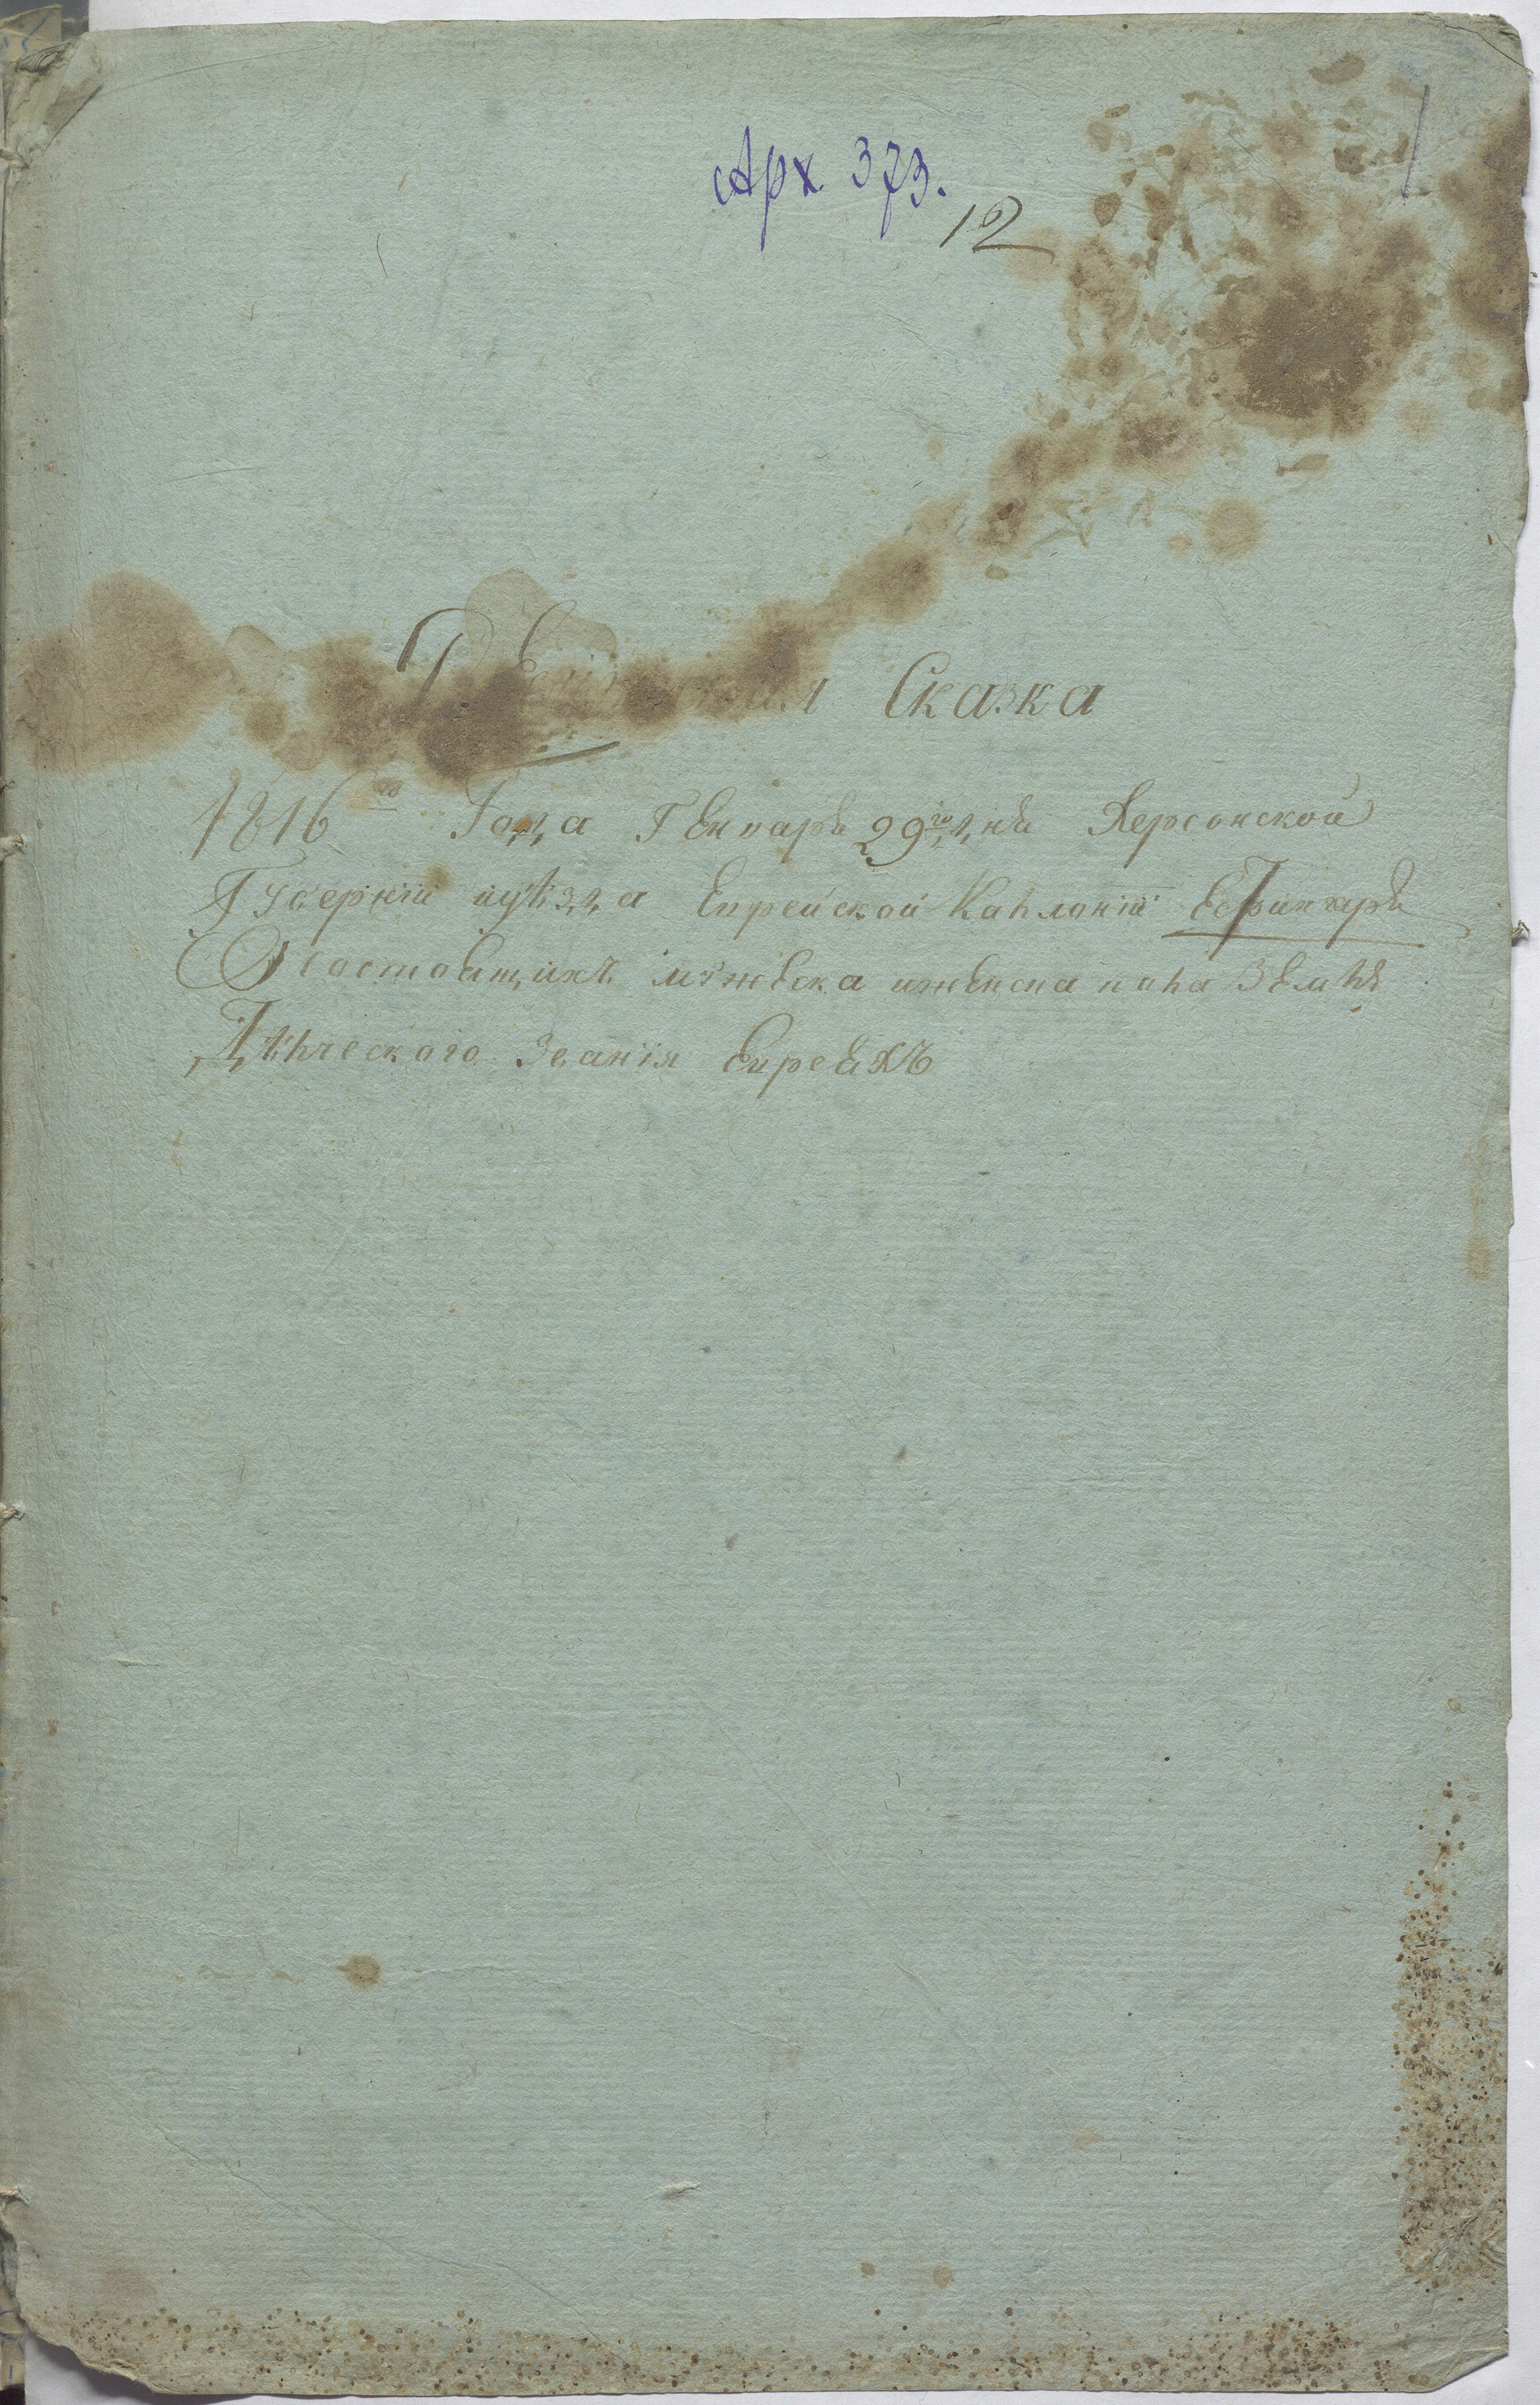 Арх. 373.
12
Ревизская Сказка
1816го Года Генваря 29го дня Херсонской
Губернїи иуѣзда Еврейской Каклонїи Ефингаръ
О состоящихъ мужеска иженска пола Землѣ
Дѣлческого Званїя Евреяхъ